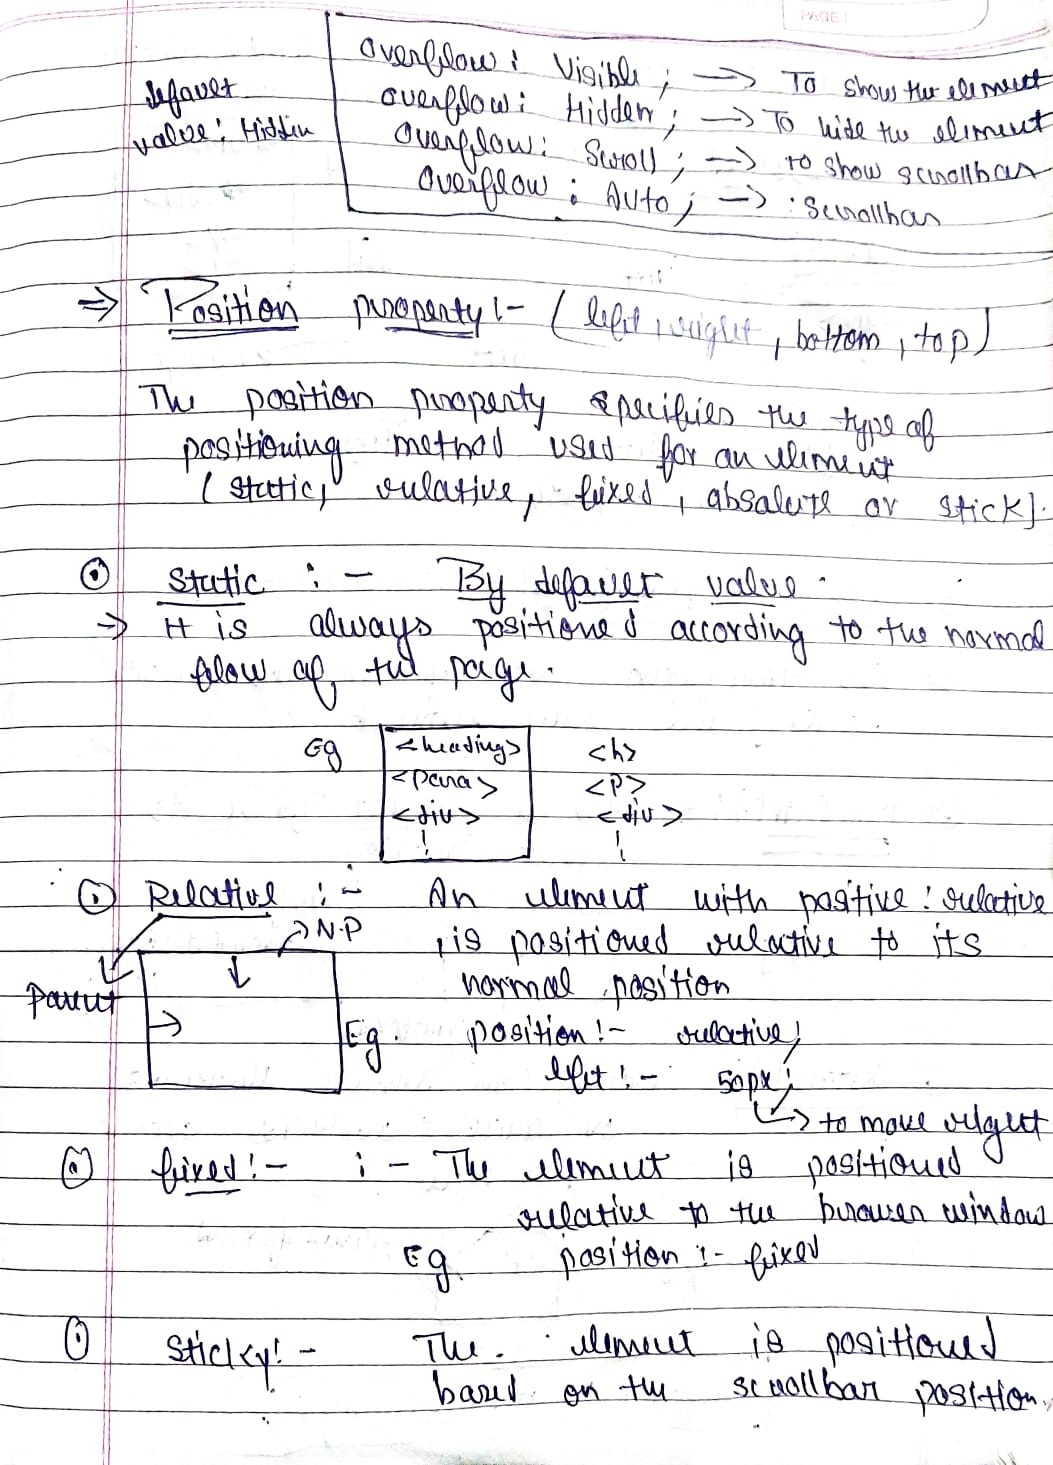 PAGE
Overflow : Visible ; → To show the element
default
Overflow : Hidden ; → To hide the eliment
value : Hiddin
Overflow : Scroll ; → to show scrollbar
Overflow : Auto ; → : Scrollbar
⇒ Position property :- ( left , right , bottom , top )
The position property specifies the type of
positioning method used for an element
( static, relative, fixed , absalute or stick ).
Static : - By default value .
→ It is always positioned according to the normal
flow of the page .
Eg <heading> <h>
<para> <P>
<div> <div>
Relative : - An element with positive : relative
→ N.P , is positioned relative to its
Parent normal position
Eg. position :- relative ;
left : - 50px ;
→ to move
fixed :- : - The element is positioned
relative to the browser window
Eg. position :- fixed
Sticky! - The . element is positioned
based on the scrollbar position.